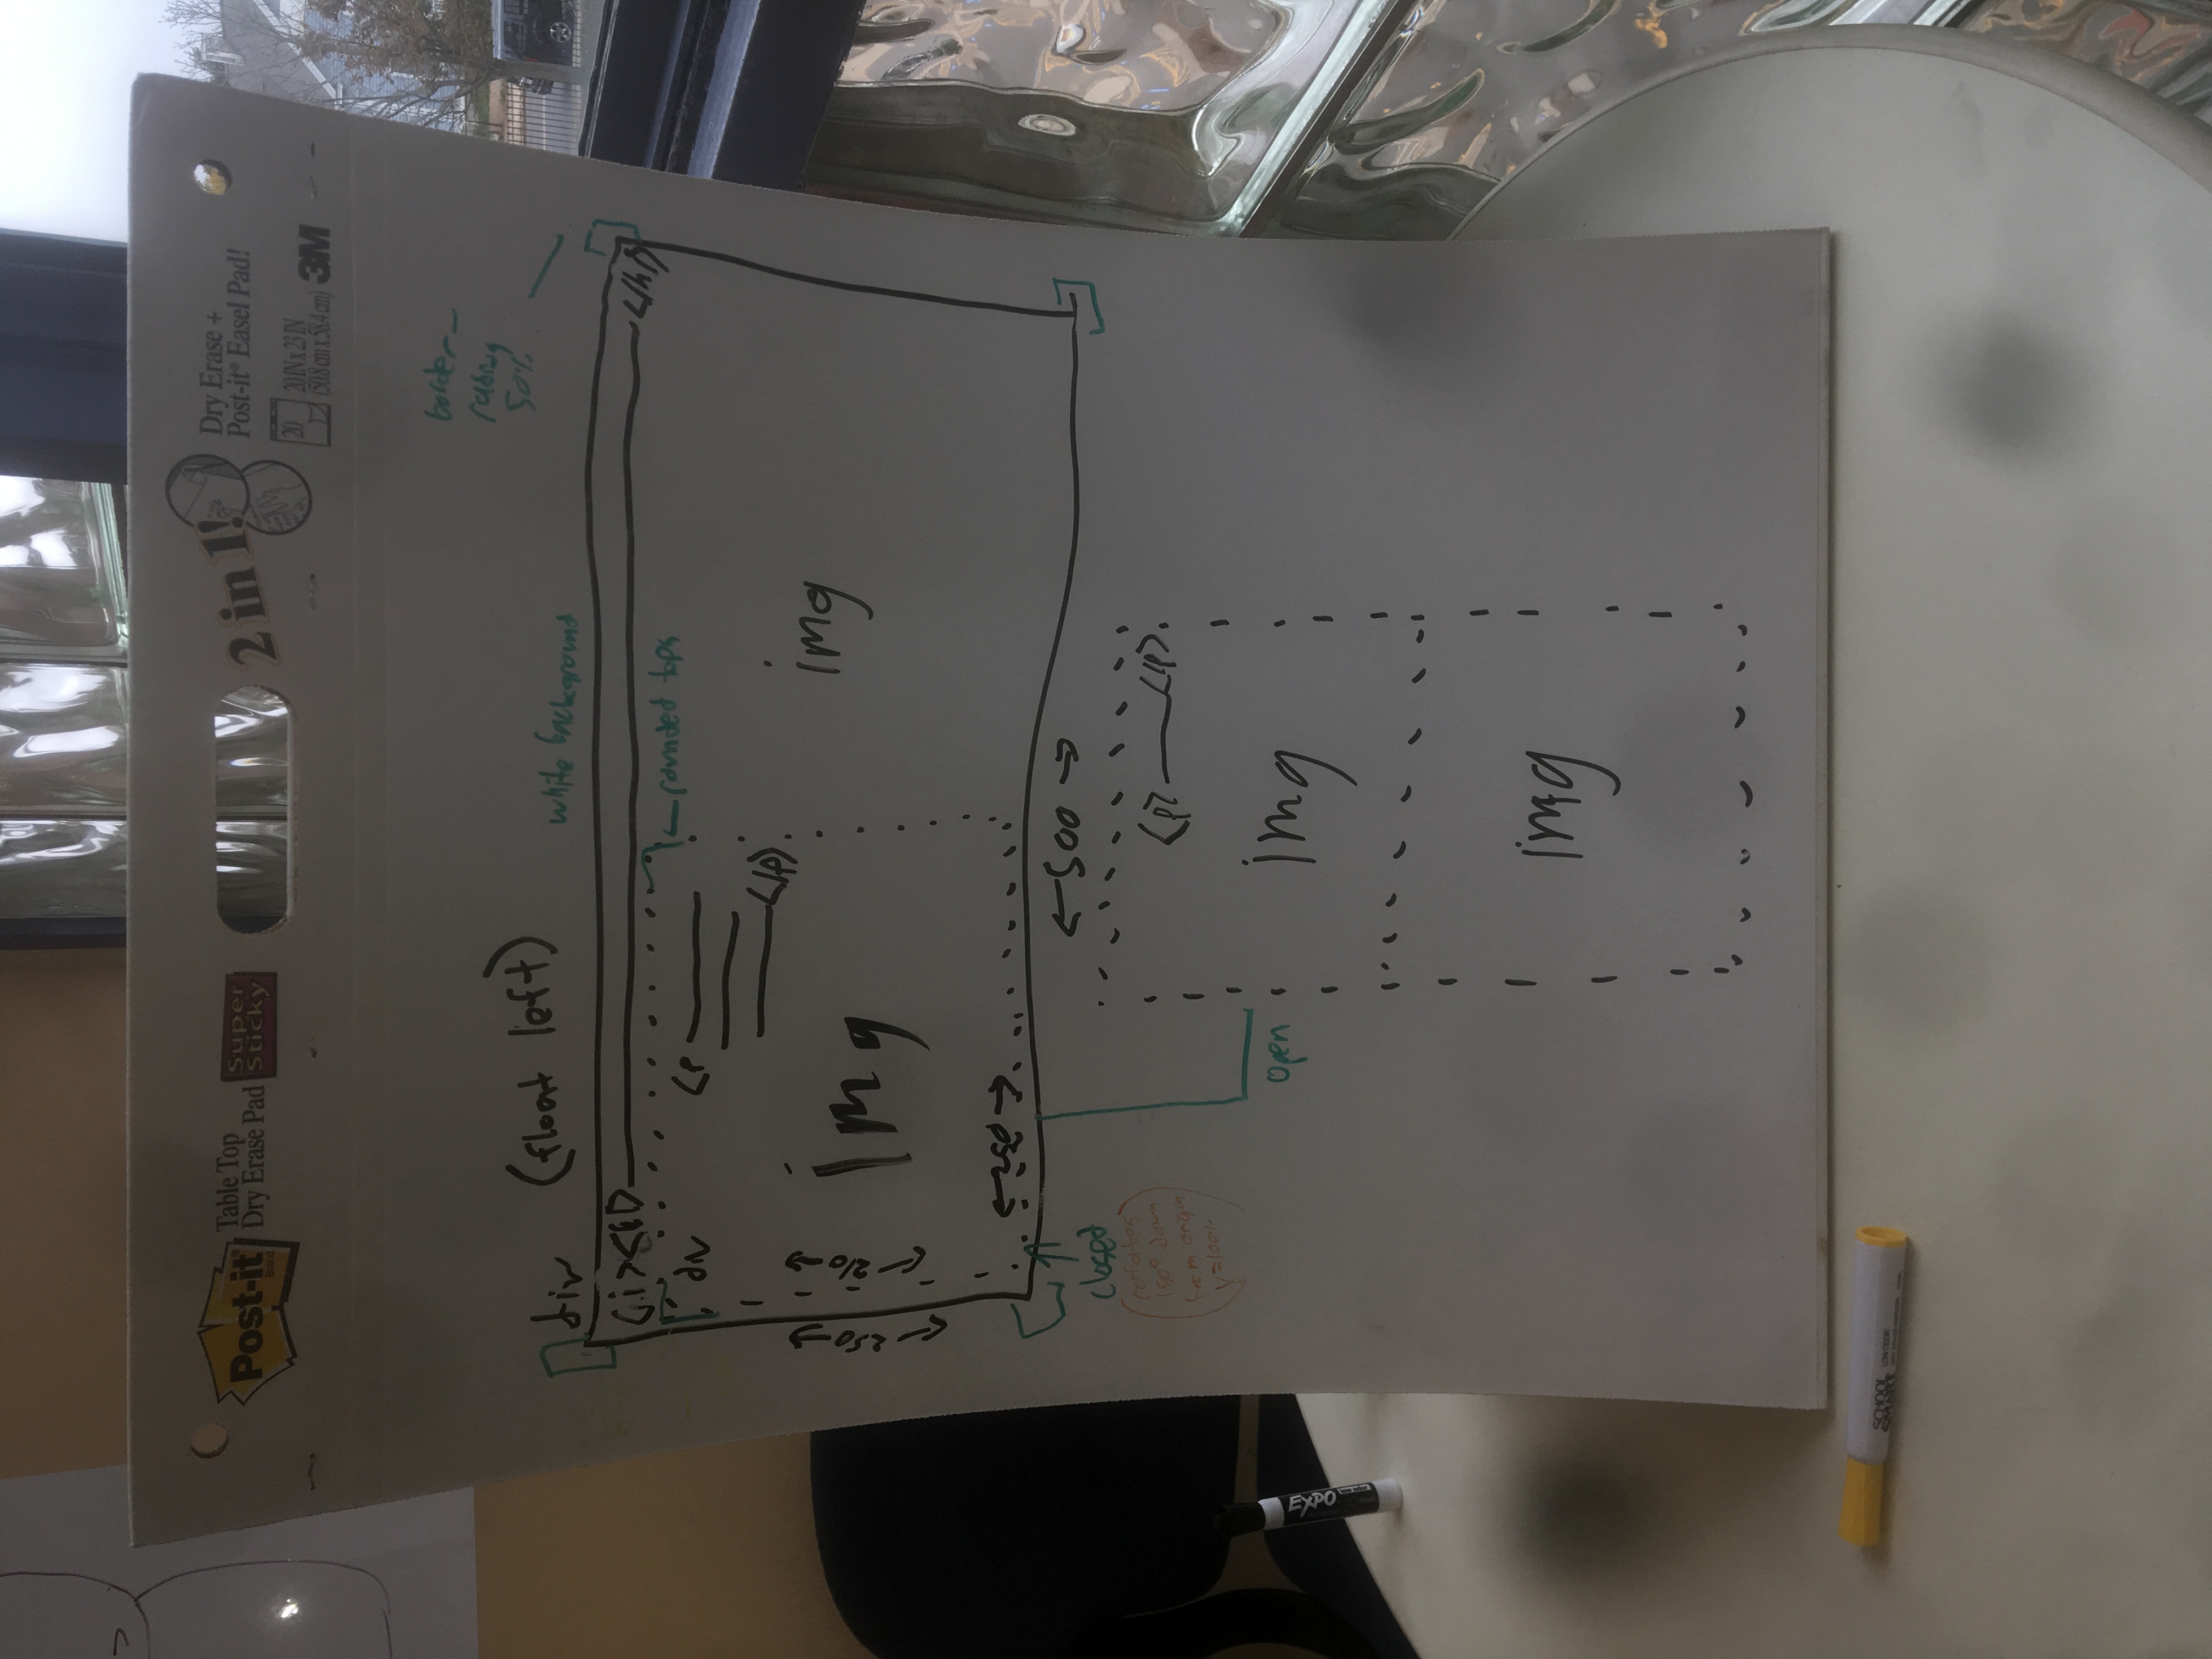 Post-it
Brand
Table Top
Dry Erase Pad
Super
Sticky
2 in 1!
Dry Erase +
Post-it® Easel Pad!
20
20 IN x 23 IN
(50.8 cm x 58.4 cm)
3M
border-
radius
50%
div (float left)
white background
<i>
rounded tops
div
<p
</p>
img
img
250
210
250
500
closed
(rotates
180° down
from origin
y=100%)
<p> </p>
img
open
img
EXPO
SCHOOL
SMART
LOW ODOR